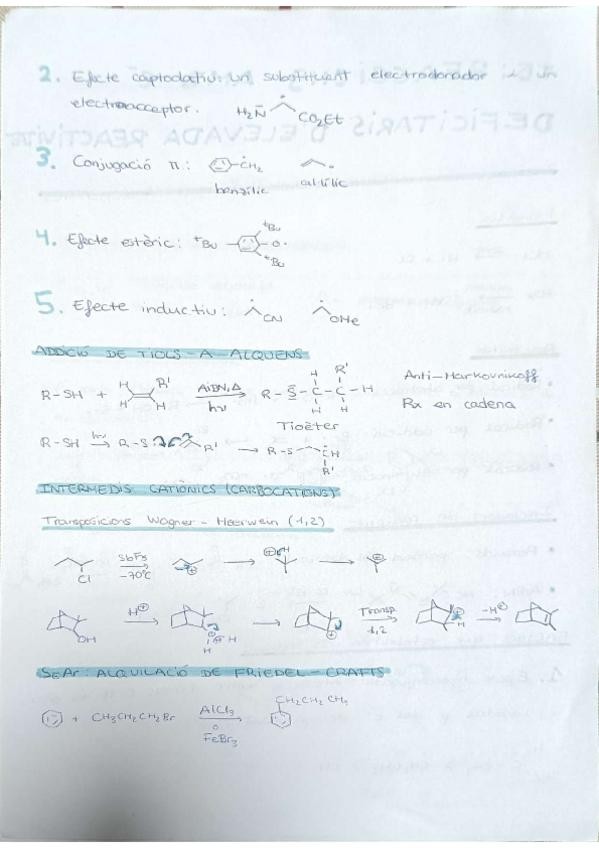 2. Efecte captodatiu: un substituent electrodonador i un
electroacceptor. H₂N̄ CO₂Et
3. Conjugació π: ĊH₂
benzílic al·lílic
4. Efecte estèric: ᵗBu ᵗBu O· ᵗBu
5. Efecte inductiu: CN OMe
ADDICIÓ DE TIOLS A ALQUENS
R-SH + H R' H H AIBN, Δ hν R-S-C-C-H H R' H H Anti-Markovnikoff
Rx en cadena
Tioèter
R-SH hν R-S· R' R-S ĊH R'
INTERMEDIS CATIÒNICS (CARBOCATIONS)
Transposicions Wagner-Meerwein (1,2)
Cl SbF₅ -70°C ⊕ ⊕ H ⊕
OH H⊕ H H ⊕ Transp. 1,2 ⊕ H -H⊕
SEAr: ALQUILACIÓ DE FRIEDEL-CRAFTS
+ CH₃CH₂CH₂Br AlCl₃ o FeBr₃ CH₂CH₂CH₃